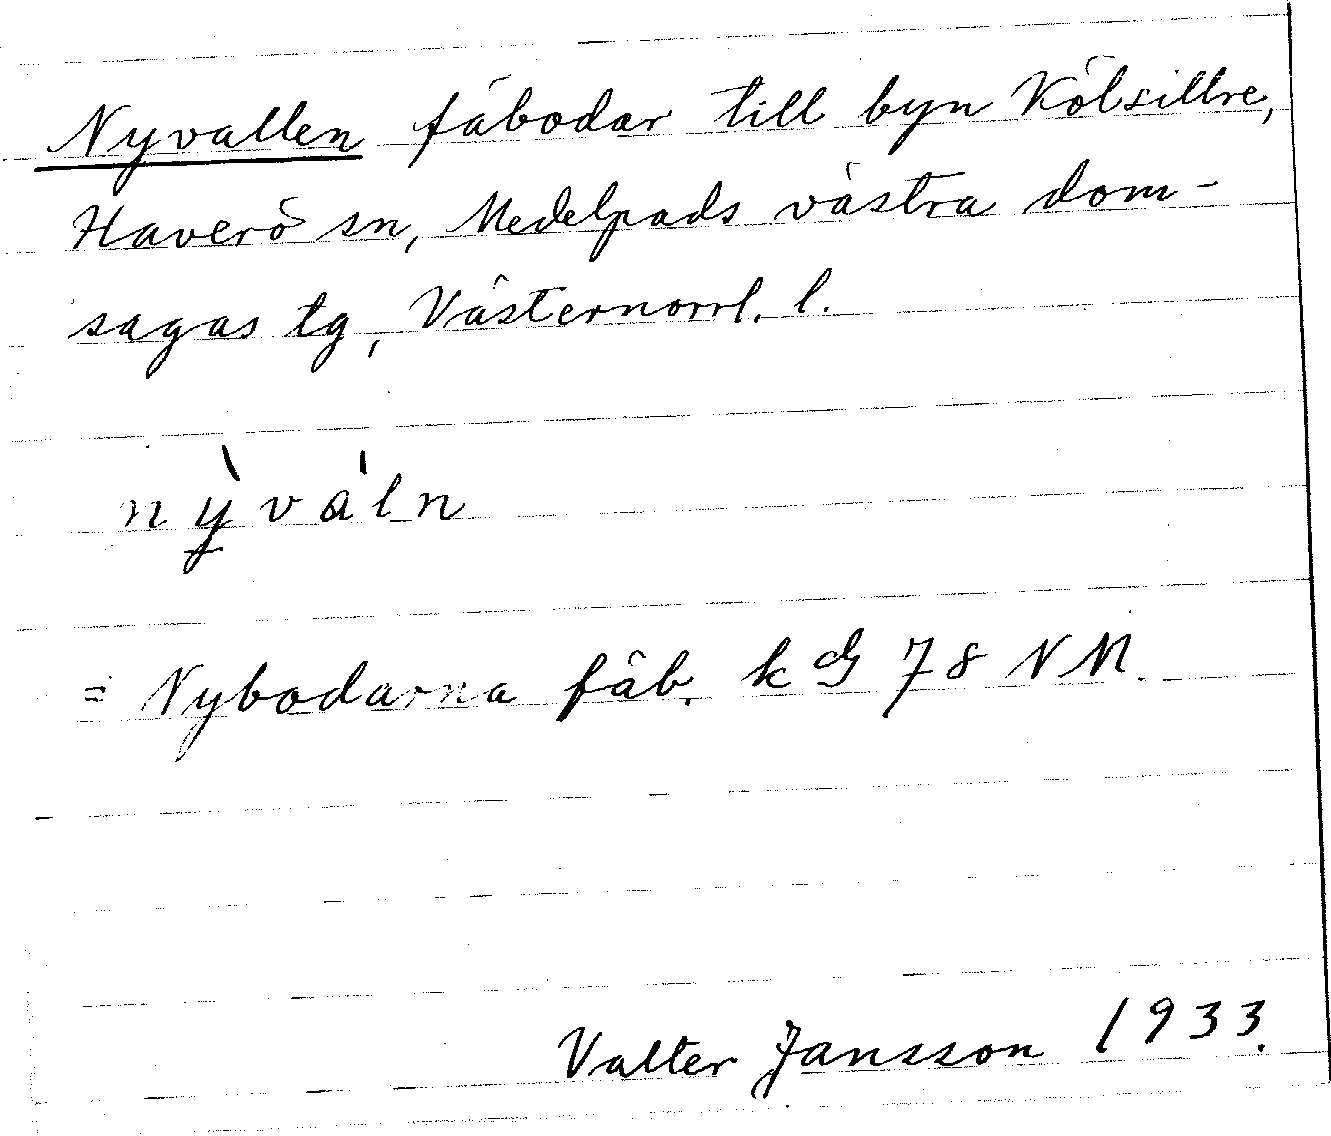 Nyvallen fäbodar till byn Kölsillre,
Haverö sn, Medelpads västra dom-
sagas tg, Västernorrl. l.
nỳváln
= Nybodarna fäb. k dG 78 NM.
Valter Jansson 1933.